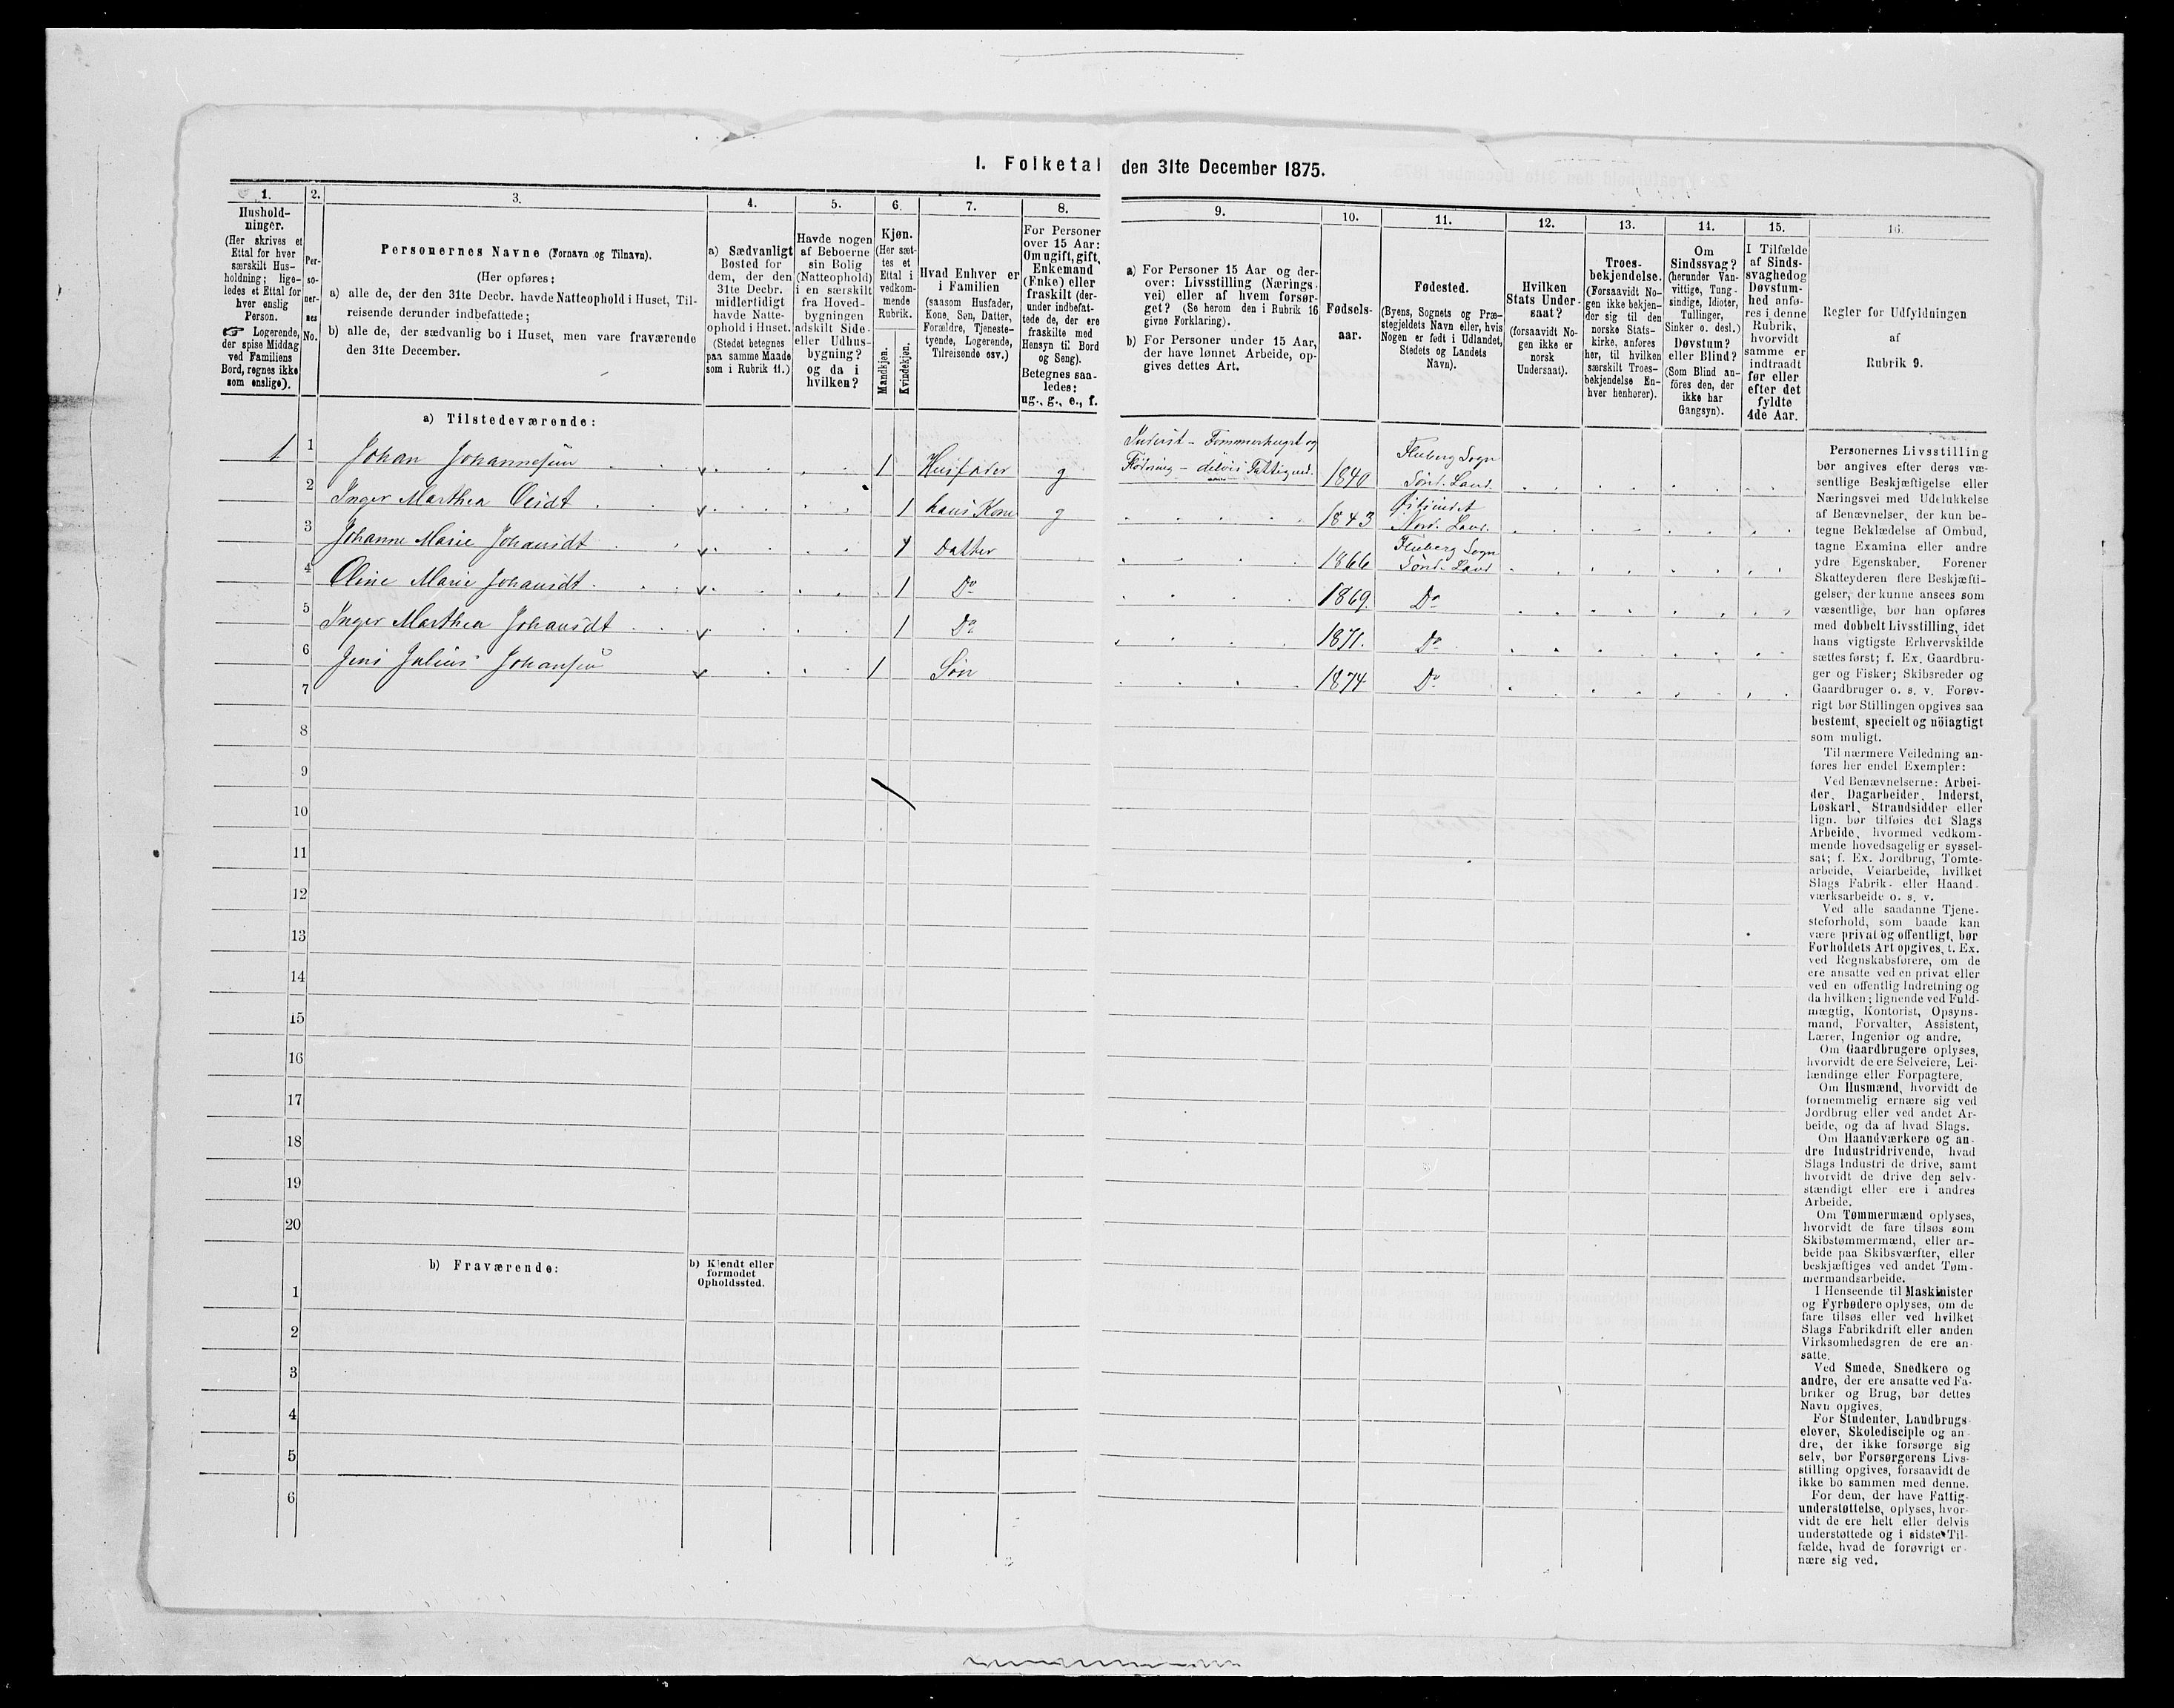 I. Folketal den 31te December 1875.
1.
Hushold-
ninger.
(Her skrives et
Ettal for hver
særskilt Hus-
holdning; lige-
ledes et Ettal for
hver enslig
Person.
☞ Logerende,
der spise Middag
ved Familiens
Bord, regnes ikke
som enslige).
2.
Per-
so-
ner-
nes
No.
3.
Personernes Navne (Fornavn og Tilnavn).
(Her opføres:
a) alle de, der den 31te Decbr. havde Natteophold i Huset, Til-
reisende derunder indbefattede;
b) alle de, der sædvanlig bo i Huset, men vare fraværende
den 31te December.
4.
a) Sædvanligt
Bosted for
dem, der den
31te Decbr.
midlertidigt
havde Natte-
ophold i Huset.
(Stedet betegnes
paa samme Maade
som i Rubrik 11.)
5.
Havde nogen
af Beboerne
sin Bolig
(Natteophold)
i en særskilt
fra Hoved-
bygningen
adskilt Side-
eller Udhus-
bygning?
og da i
hvilken?
6.
Kjøn.
(Her sæt-
tes et
Ettal i
vedkom-
mende
Rubrik.
Mandkjøn.
Kvindekjøn.
7.
Hvad Enhver er
i Familien
(saasom Husfader,
Kone, Søn, Datter,
Forældre, Tjeneste-
tyende, Logerende,
Tilreisende osv.)
8.
For Personer
over 15 Aar:
Om ugift, gift,
Enkemand
(Enke) eller
fraskilt (der-
under indbefat-
tede de, der ere
fraskilte med
Hensyn til Bord
og Seng).
Betegnes saa-
ledes:
ug., g., e., f.
9.
a) For Personer 15 Aar og der-
over: Livsstilling (Nærings-
vei) eller af hvem forsør-
get? (Se herom den i Rubrik 16
givne Forklaring).
b) For Personer under 15 Aar,
der have lønnet Arbeide, op-
gives dettes Art.
10.
Fødsels-
aar.
11.
Fødested.
(Byens, Sognets og Præ-
stegjeldets Navn eller, hvis
Nogen er født i Udlandet,
Stedets og Landets
Navn).
12.
Hvilken
Stats Under-
saat?
(forsaavidt No-
gen ikke er
norsk
Undersaat).
13.
Troes-
bekjendelse.
(Forsaavidt No-
gen ikke bekjen-
der sig til den
norske Stats-
kirke, anføres
her, til hvilken
særskilt Troes-
bekjendelse En-
hver henhører).
14.
Om
Sindssvag?
(herunder Van-
vittige, Tung-
sindige, Idioter,
Tullinger,
Sinker o. desl.)
Døvstum?
eller Blind?
(Som Blind an-
føres den, der
ikke har
Gangsyn).
15.
I Tilfælde
af Sinds-
svaghed og
Døvstum-
hed anfø-
res i denne
Rubrik,
hvorvidt
samme er
indtraadt
før eller
efter det
fyldte
4de Aar.
16.
Regler for Udfyldningen
af
Rubrik 9.
a) Tilstedeværende:
1 1 Johan Johannesen 1 Husfader g Inderst - Tømmerhugst og
Flødning - delvis Fattigund. 1840 Fluberg Sogn
Sønd. Land.
2 Inger Marthea Olsdt 1 hans Kone g 1843 Østsindet
Nord. Land.
3 Johanne Marie Johansdt 1 Datter 1866 Fluberg Sogn
Sønd. Land
4 Oline Marie Johansdt. 1 Do 1869. Do
5 Inger Marthea Johansdt 1 Do 1871. Do
6 Jens Julius Johansen 1 Søn 1874 Do
7
8
9
10
11
12
13
14
15
16
17
18
19
20
b) Fraværende:
b) Kjendt eller
formodet
Opholdssted.
1
2
3
4
5
6
Personernes Livsstilling
bør angives efter deres væ-
sentlige Beskjæftigelse eller
Næringsvei med Udelukkelse
af Benævnelser, der kun be-
tegne Beklædelse af Ombud,
tagne Examina eller andre
ydre Egenskaber. Forener
Skatteyderen flere Beskjæfti-
gelser, der kunne ansees som
væsentlige, bør han opføres
med dobbelt Livsstilling, idet
hans vigtigste Erhvervskilde
sættes først; f. Ex. Gaardbru-
ger og Fisker; Skibsreder og
Gaardbruger o. s. v. Forøv-
rigt bør Stillingen opgives saa
bestemt, specielt og nöiagtigt
som muligt.
Til nærmere Veiledning an-
føres her endel Exempler:
Ved Benævnelserne: Arbei-
der, Dagarbeider, Inderst,
Løskarl, Strandsidder eller
lign. bør tilføies det Slags
Arbeide, hvormed vedkom-
mende hovedsagelig er syssel-
sat; f. Ex. Jordbrug, Tomte-
arbeide, Veiarbeide, hvilket
Slags Fabrik- eller Haand-
værksarbeide o. s. v.
Ved alle saadanne Tjene-
steforhold, som baade kan
være privat og offentligt, bør
Forholdets Art opgives, t. Ex.
ved Regnskabsførere, om de
ere ansatte ved en privat eller
ved en offentlig Indretning og
da hvilken; lignende ved Fuld-
mægtig, Kontorist, Opsyns-
mand, Forvalter, Assistent,
Lærer, Ingeniør og andre.
Om Gaardbrugere oplyses,
hvorvidt de ere Selveiere, Lei-
lændinge eller Forpagtere.
Om Husmænd, hvorvidt de
fornemmelig ernære sig ved
Jordbrug eller ved andet Ar-
beide, og da af hvad Slags.
Om Haandværkere og an-
dre Industridrivende, hvad
Slags Industri de drive, samt
hvorvidt de drive den selv-
stændigt eller ere i andres
Arbeide.
Om Tømmermænd oplyses,
hvorvidt de fare tilsøs som
Skibstømmermænd, eller ar-
beide paa Skibsværfter, eller
beskjæftiges ved andet Tøm-
mermandsarbeide.
I Henseende til Maskinister
og Fyrbødere oplyses, om de
fare tilsøs eller ved hvilket
Slags Fabrikdrift eller anden
Virksomhedsgren de ere an-
satte.
Ved Smede, Snedkere og
andre, der ere ansatte ved Fa-
briker og Brug, bør dettes
Navn opgives.
For Studenter, Landbrugs-
elever, Skoledisciple og an-
dre, der ikke forsørge sig
selv, bør Forsørgerens Livs-
stilling opgives, forsaavidt de
ikke bo sammen med denne.
For dem, der have Fattig-
understøttelse, oplyses, hvor-
vidt de ere helt eller delvis
understøttede og i sidste Til-
fælde, hvad de forøvrigt er-
nære sig ved.